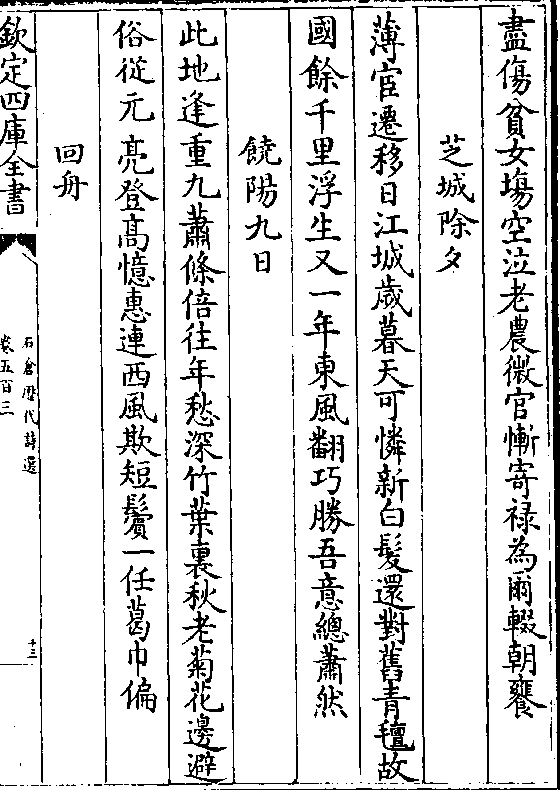 盡傷貧女塲空泣老農微官慚寄禄為爾輟朝饔
芝城除夕
薄宦遷移日江城歲暮天可憐新白髮還對舊青氊故
國餘千里浮生又一年東風翻巧勝吾意總蕭然
饒陽九日
此地逢重九蕭條倍往年愁深竹葉裏秋老菊花邊避
俗從元亮登髙憶惠連西風欺短鬢一任葛巾偏
回舟
欽定四庫全書
石倉歴代詩選
卷五百三
十三